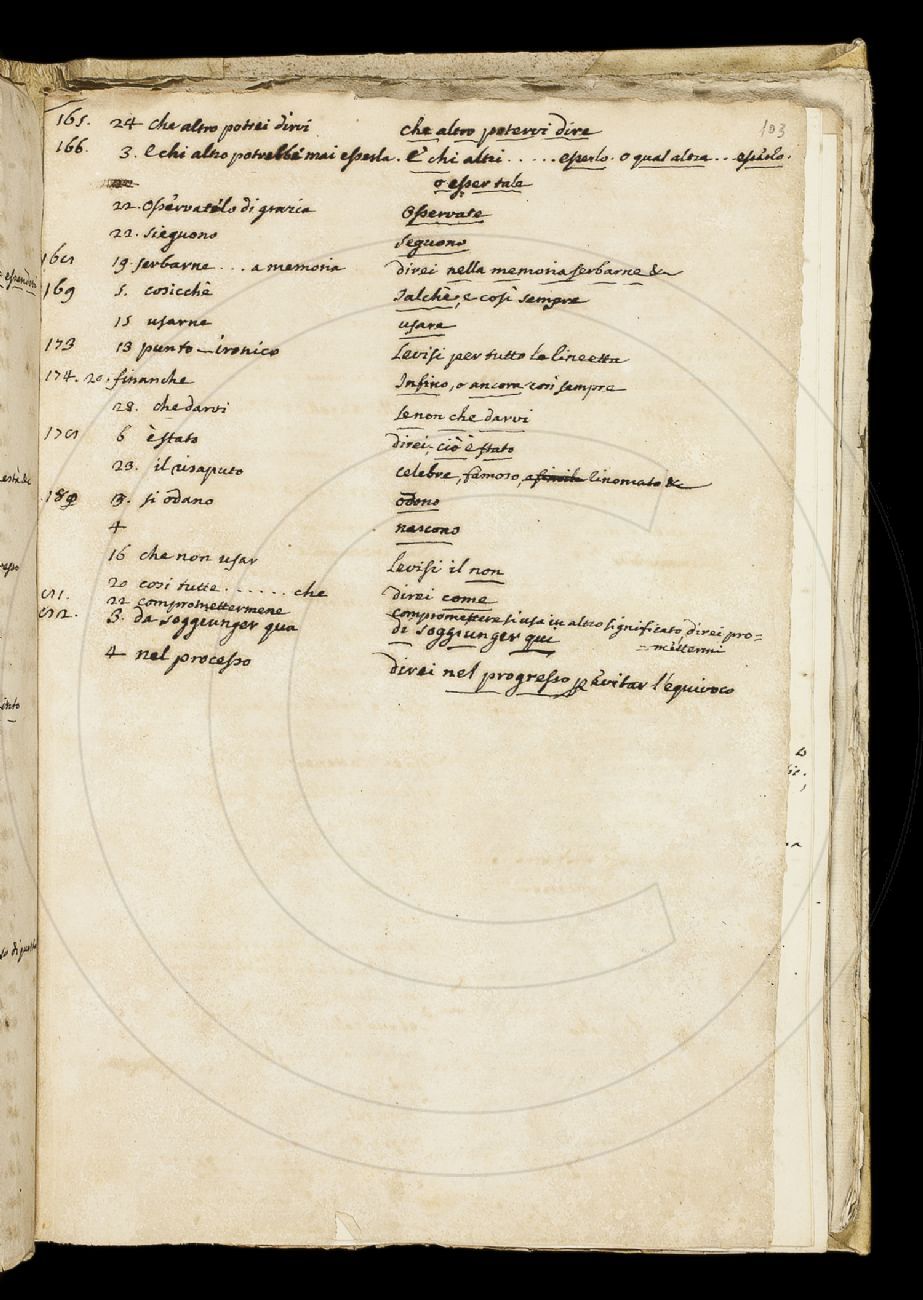 103
165. 24 che altro potrei dirvi che altro potervi dire
166. 3. e chi altro potrebbe mai esserla. E chi altri . . . . . esserlo. o qual altra . . . esserlo.
o esser tale
22. Osservatelo di grazia Osservate
22. sieguono seguono
19. serbarne . . . a memoria direi nella memoria serbarne &c
169 5. cosicchè Talchè, e così sempre
15 usarne usare
173 13 punto — ironico Levisi per tutto la lineetta
174. 20. finanche Insino, o ancora così sempre
28. che darvi se non che darvi
6 è stato direi, ciò è stato
23. il risaputo celebre, famoso, rinomato &c
si odano odono
4 nascono
16 che non usar Levisi il non
20 così tutte . . . . . . che direi come
22 compromettermene compromettere si usa in altro significato, direi pro=
=mettermi
3. da soggiunger qua di soggiunger qui
4 nel processo direi nel progresso p evitar l'equivoco